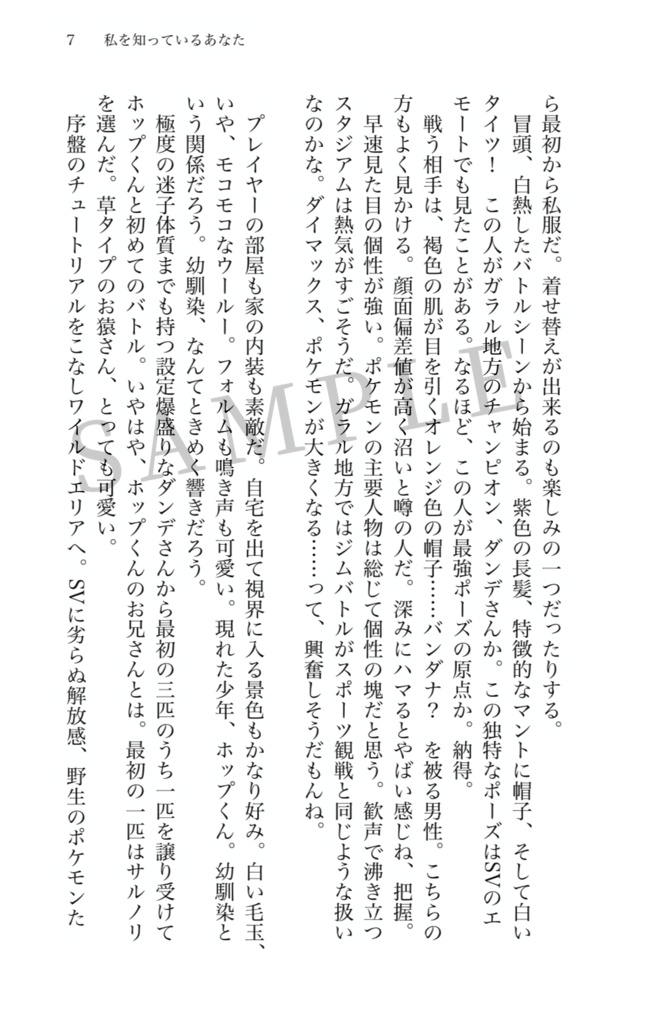 7 私を知っているあなた
ら最初から私服だ。着せ替えが出来るのも楽しみの一つだったりする。
冒頭、白熱したバトルシーンから始まる。紫色の長髪、特徴的なマントに帽子、そして白い
タイツ！　この人がガラル地方のチャンピオン、ダンデさんか。この独特なポーズはSVのエ
モートでも見たことがある。なるほど、この人が最強ポーズの原点か。納得。
戦う相手は、褐色の肌が目を引くオレンジ色の帽子……バンダナ？　を被る男性。こちらの
方もよく見かける。顔面偏差値が高く沼いと噂の人だ。深みにハマるとやばい感じね、把握。
早速見た目の個性が強い。ポケモンの主要人物は総じて個性の塊だと思う。歓声で沸き立つ
スタジアムは熱気がすごそうだ。ガラル地方ではジムバトルがスポーツ観戦と同じような扱い
なのかな。ダイマックス、ポケモンが大きくなる……って、興奮しそうだもんね。
プレイヤーの部屋も家の内装も素敵だ。自宅を出て視界に入る景色もかなり好み。白い毛玉、
いや、モコモコなウールー。フォルムも鳴き声も可愛い。現れた少年、ホップくん。幼馴染と
いう関係だろう。幼馴染、なんてときめく響きだろう。
極度の迷子体質までも持つ設定爆盛りなダンデさんから最初の三匹のうち一匹を譲り受けて
ホップくんと初めてのバトル。いやはや、ホップくんのお兄さんとは。最初の一匹はサルノリ
を選んだ。草タイプのお猿さん、とっても可愛い。
序盤のチュートリアルをこなしワイルドエリアへ。SVに劣らぬ解放感、野生のポケモンた
SAMPLE